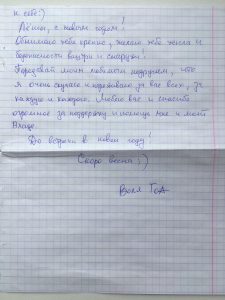 к себе:)
Лёша, с новым годом!
Обнимаю тебя крепко, желаю тебе тепла и
безопасности внутри и снаружи!
Передавай моим любимым подружкам, что
я очень скучаю и переживаю за вас всех, за
каждую и каждого. Люблю вас и спасибо
огромное за поддержку и помощь мне и моей
Владе.
До встречи в новом году!
Скоро весна :)
Воля